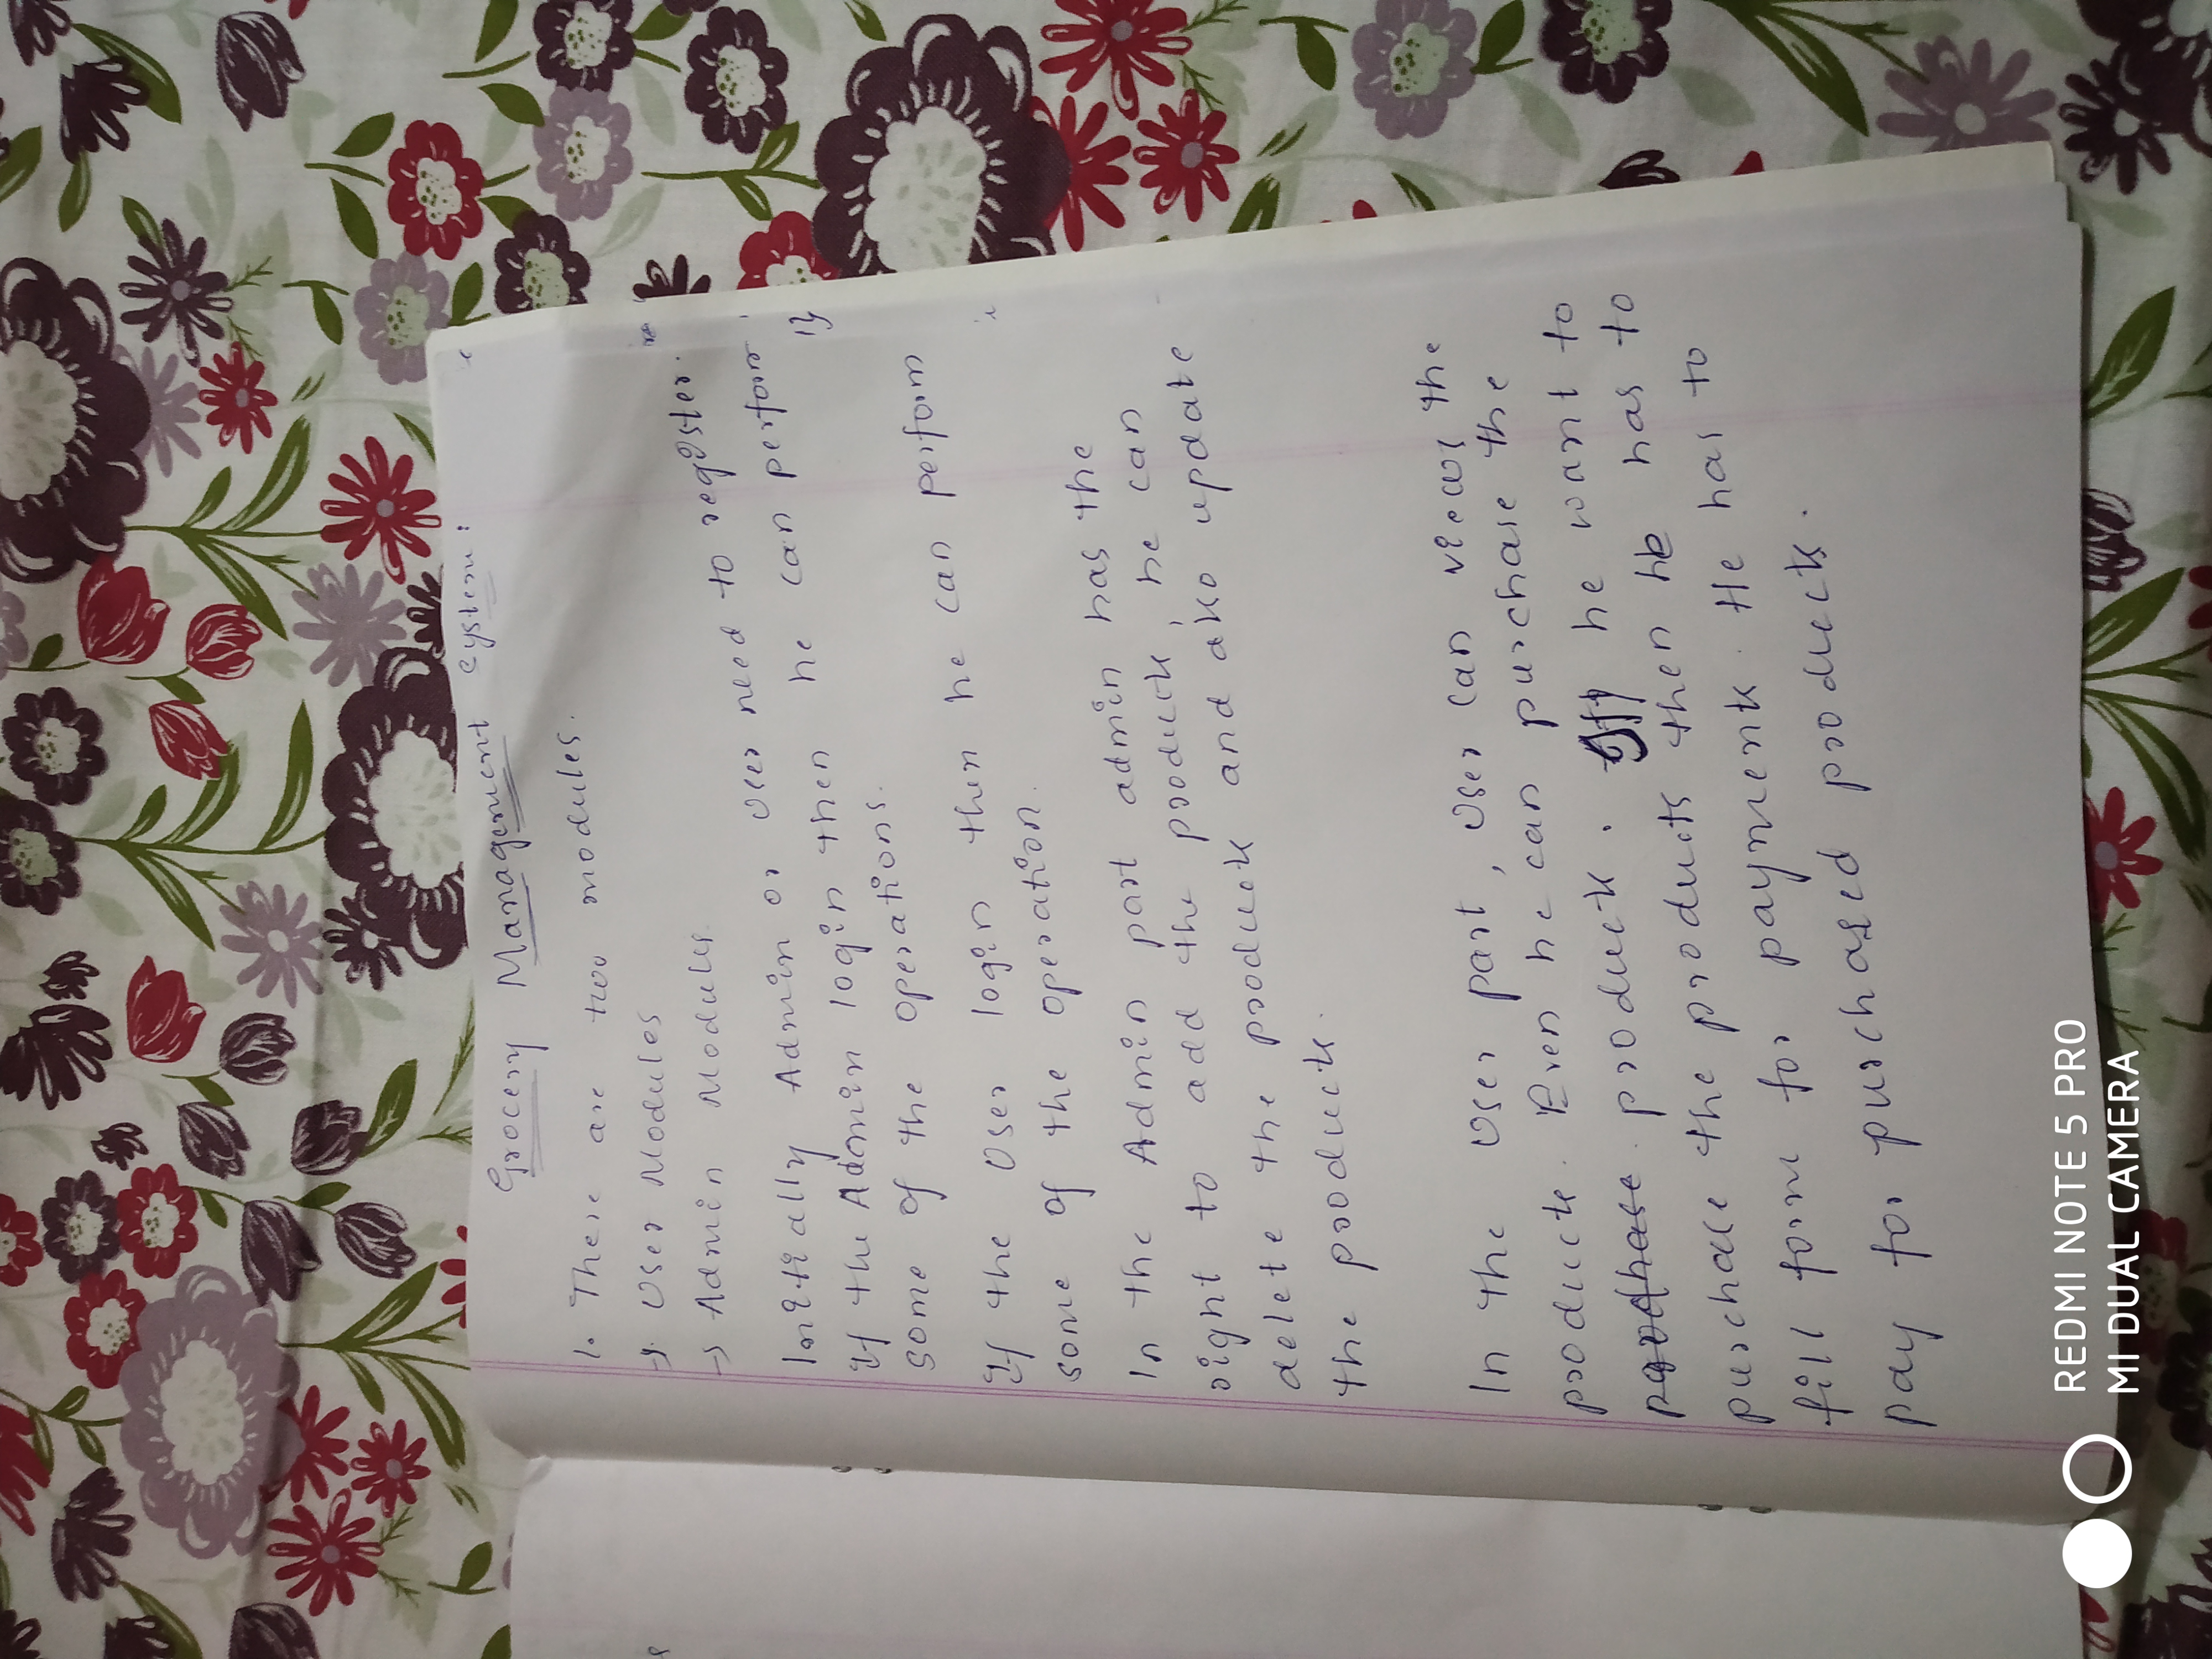 Grocery Management System:
1. There are two modules.
→ User Modules
→ Admin Modules
Initially Admin or User need to register.
If the Admin login then he can perform
some of the operations.
If the User login then he can perform
some of the operation.
In the Admin part admin has the
right to add the products, he can
delete the products and also update
the products.
In the User part, User can views the
products. Even he can purchase the
products. If he want to
purchase the products then he has to
fill form for payments. He has to
pay for purchased products.
REDMI NOTE 5 PRO
MI DUAL CAMERA